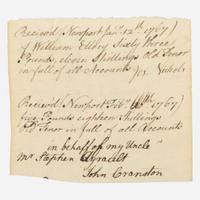 Received (Newport Janʸ 12th 1767)
of William Ellery Sixty three
Pounds, eleven Shillings Old Tenor
in full of all Accounts Jos. Nichols
Received (Newport Febʸ 1767)
five Pounds eighteen Shillings
Old Tenor in full of all Accounts
in behalf of my Uncle
Mr Stephen Ayrault
John Cranston